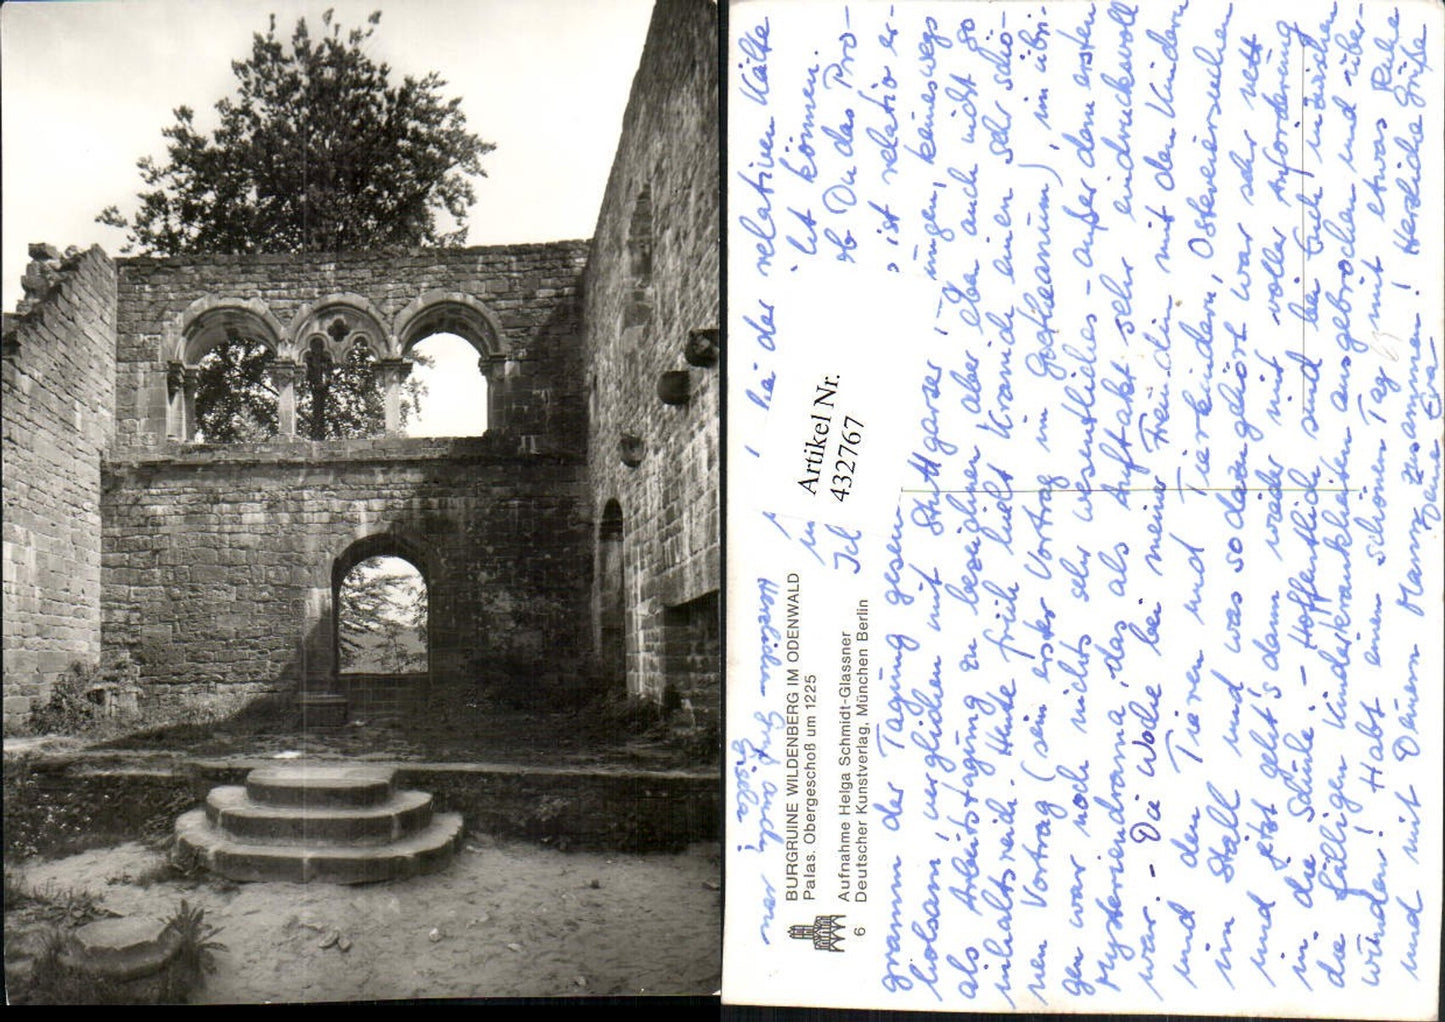 BURGRUINE WILDENBERG IM ODENWALD
Palas. Obergeschoß um 1225
Aufnahme Helga Schmidt-Glassner
6 Deutscher Kunstverlag, München Berlin
Artikel Nr.
432767
bei der relativen Kälte
können.
Ich ob Du das Pro-
gramm der Tagung gesen
ist relativ er-
holsam, verglichen mit Stuttgarter
keineswegs
als Arbeitstagung zu bezeichnen aber eben auch nicht so
inhaltsreich. Heute früh hielt Kranich einen sehr schö-
nen Vortrag (sein erster Vortrag im Goetheanum), im übri-
gen war noch nichts sehr wesentliches - außer dem ersten
Mysteriendrama, das als Auftakt sehr eindrucksvoll
war. - Die Woche bei meiner Freundin mit den Kindern
und den Tieren und Tierkindern, Ostereiersuchen
im Stall und was so dazugehört war sehr nett
und jetzt geht's dann wieder mit voller Anforderung
in die Schule. - Hoffentlich sind bei Euch inzwischen
die fälligen Kinderkrankheiten ausgebrochen und über-
wunden! Habt einen schönen Tag mit etwas Ruhe
und mit Deinem Mann zusammen! Herzliche Grüße
Deine Eva